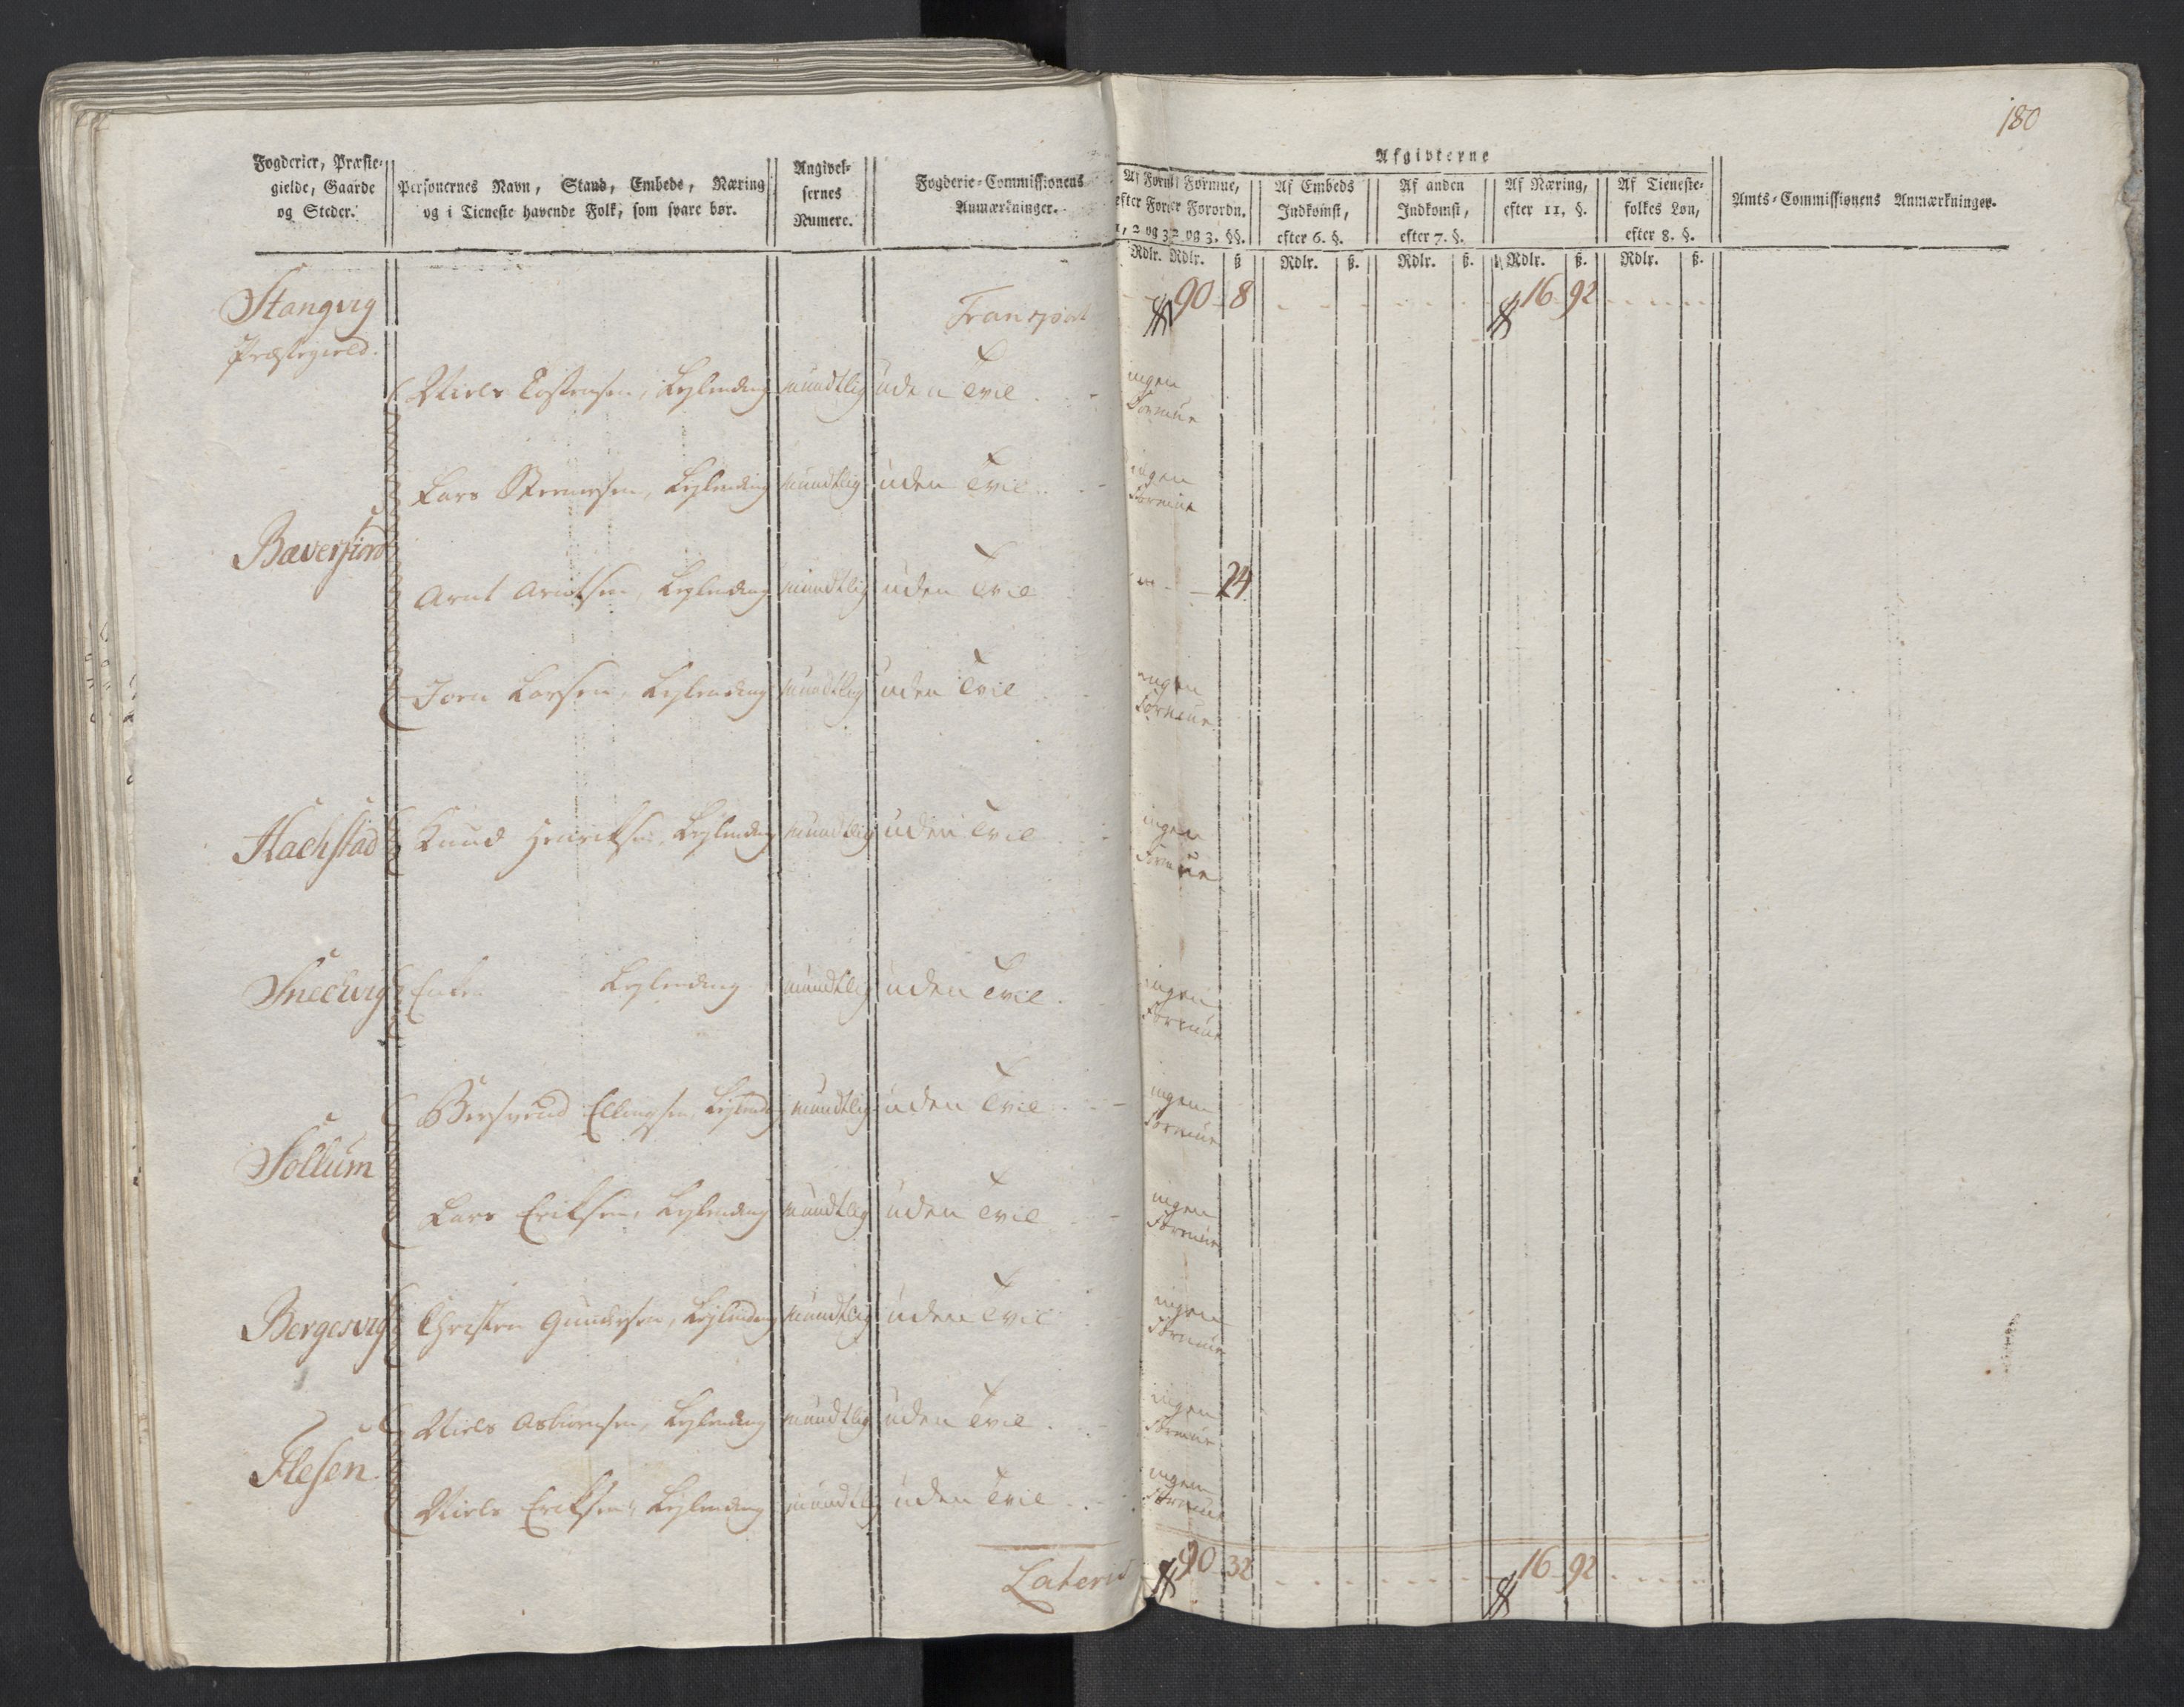 180
Afgivterne
Fogderier, Præste-
gielde, Gaarde
og Steder.
Personernes Navn, Stand, Embede, Næring
og i Tieneste havende Folk, som svare bør.
Angivel-
sernes
Numere.
Fogderie-Commissionens
Anmærkninger.
Af Formue,
efter Forordn.
1, 2 og 3. §§.
Af Embeds
Indkomst,
efter 6. §.
Af anden
Indkomst,
efter 7. §.
Af Næring,
efter 11. §.
Af Tieneste-
folkes Løn,
efter 8. §.
Amts-Commissionens Anmærkninger.
Rdlr. ß Rdlr. ß. Rdlr. ß. Rdlr. ß. Rdlr. ß.
Stangvig
Præstegield.
Transport 90 8 16 92
Niels Tostensen, Leylending mundtlig uden Tvil ingen
Formue
Lars Leylending mundtlig uden Tvil ingen
Formue
Bæverfiord
Arnt Arntsen, Leylending mundtlig uden Tvil 24
Joen Larsen, Leylending mundtlig uden Tvil ingen
Formue
Hachstad Knud Henriksen, Leylending mundtlig uden Tvil ingen
Formue
Snechvig Enken Leylending mundtlig uden Tvil ingen
Formue
Bersvend Ellingsen, Leylending mundtlig uden Tvil ingen
Formue
Sollum
Lars Eriksen, Leylending mundtlig uden Tvil ingen
Formue
Bergesvig Christen Gundersen, Leylending mundtlig uden Tvil ingen
Formue
Niels Asbiørnsen, Leylending mundtlig uden Tvil ingen
Formue
Flesen
Niels Eriksen, Leylending mundtlig uden Tvil ingen
Formue
Lateris 90 32 16 92